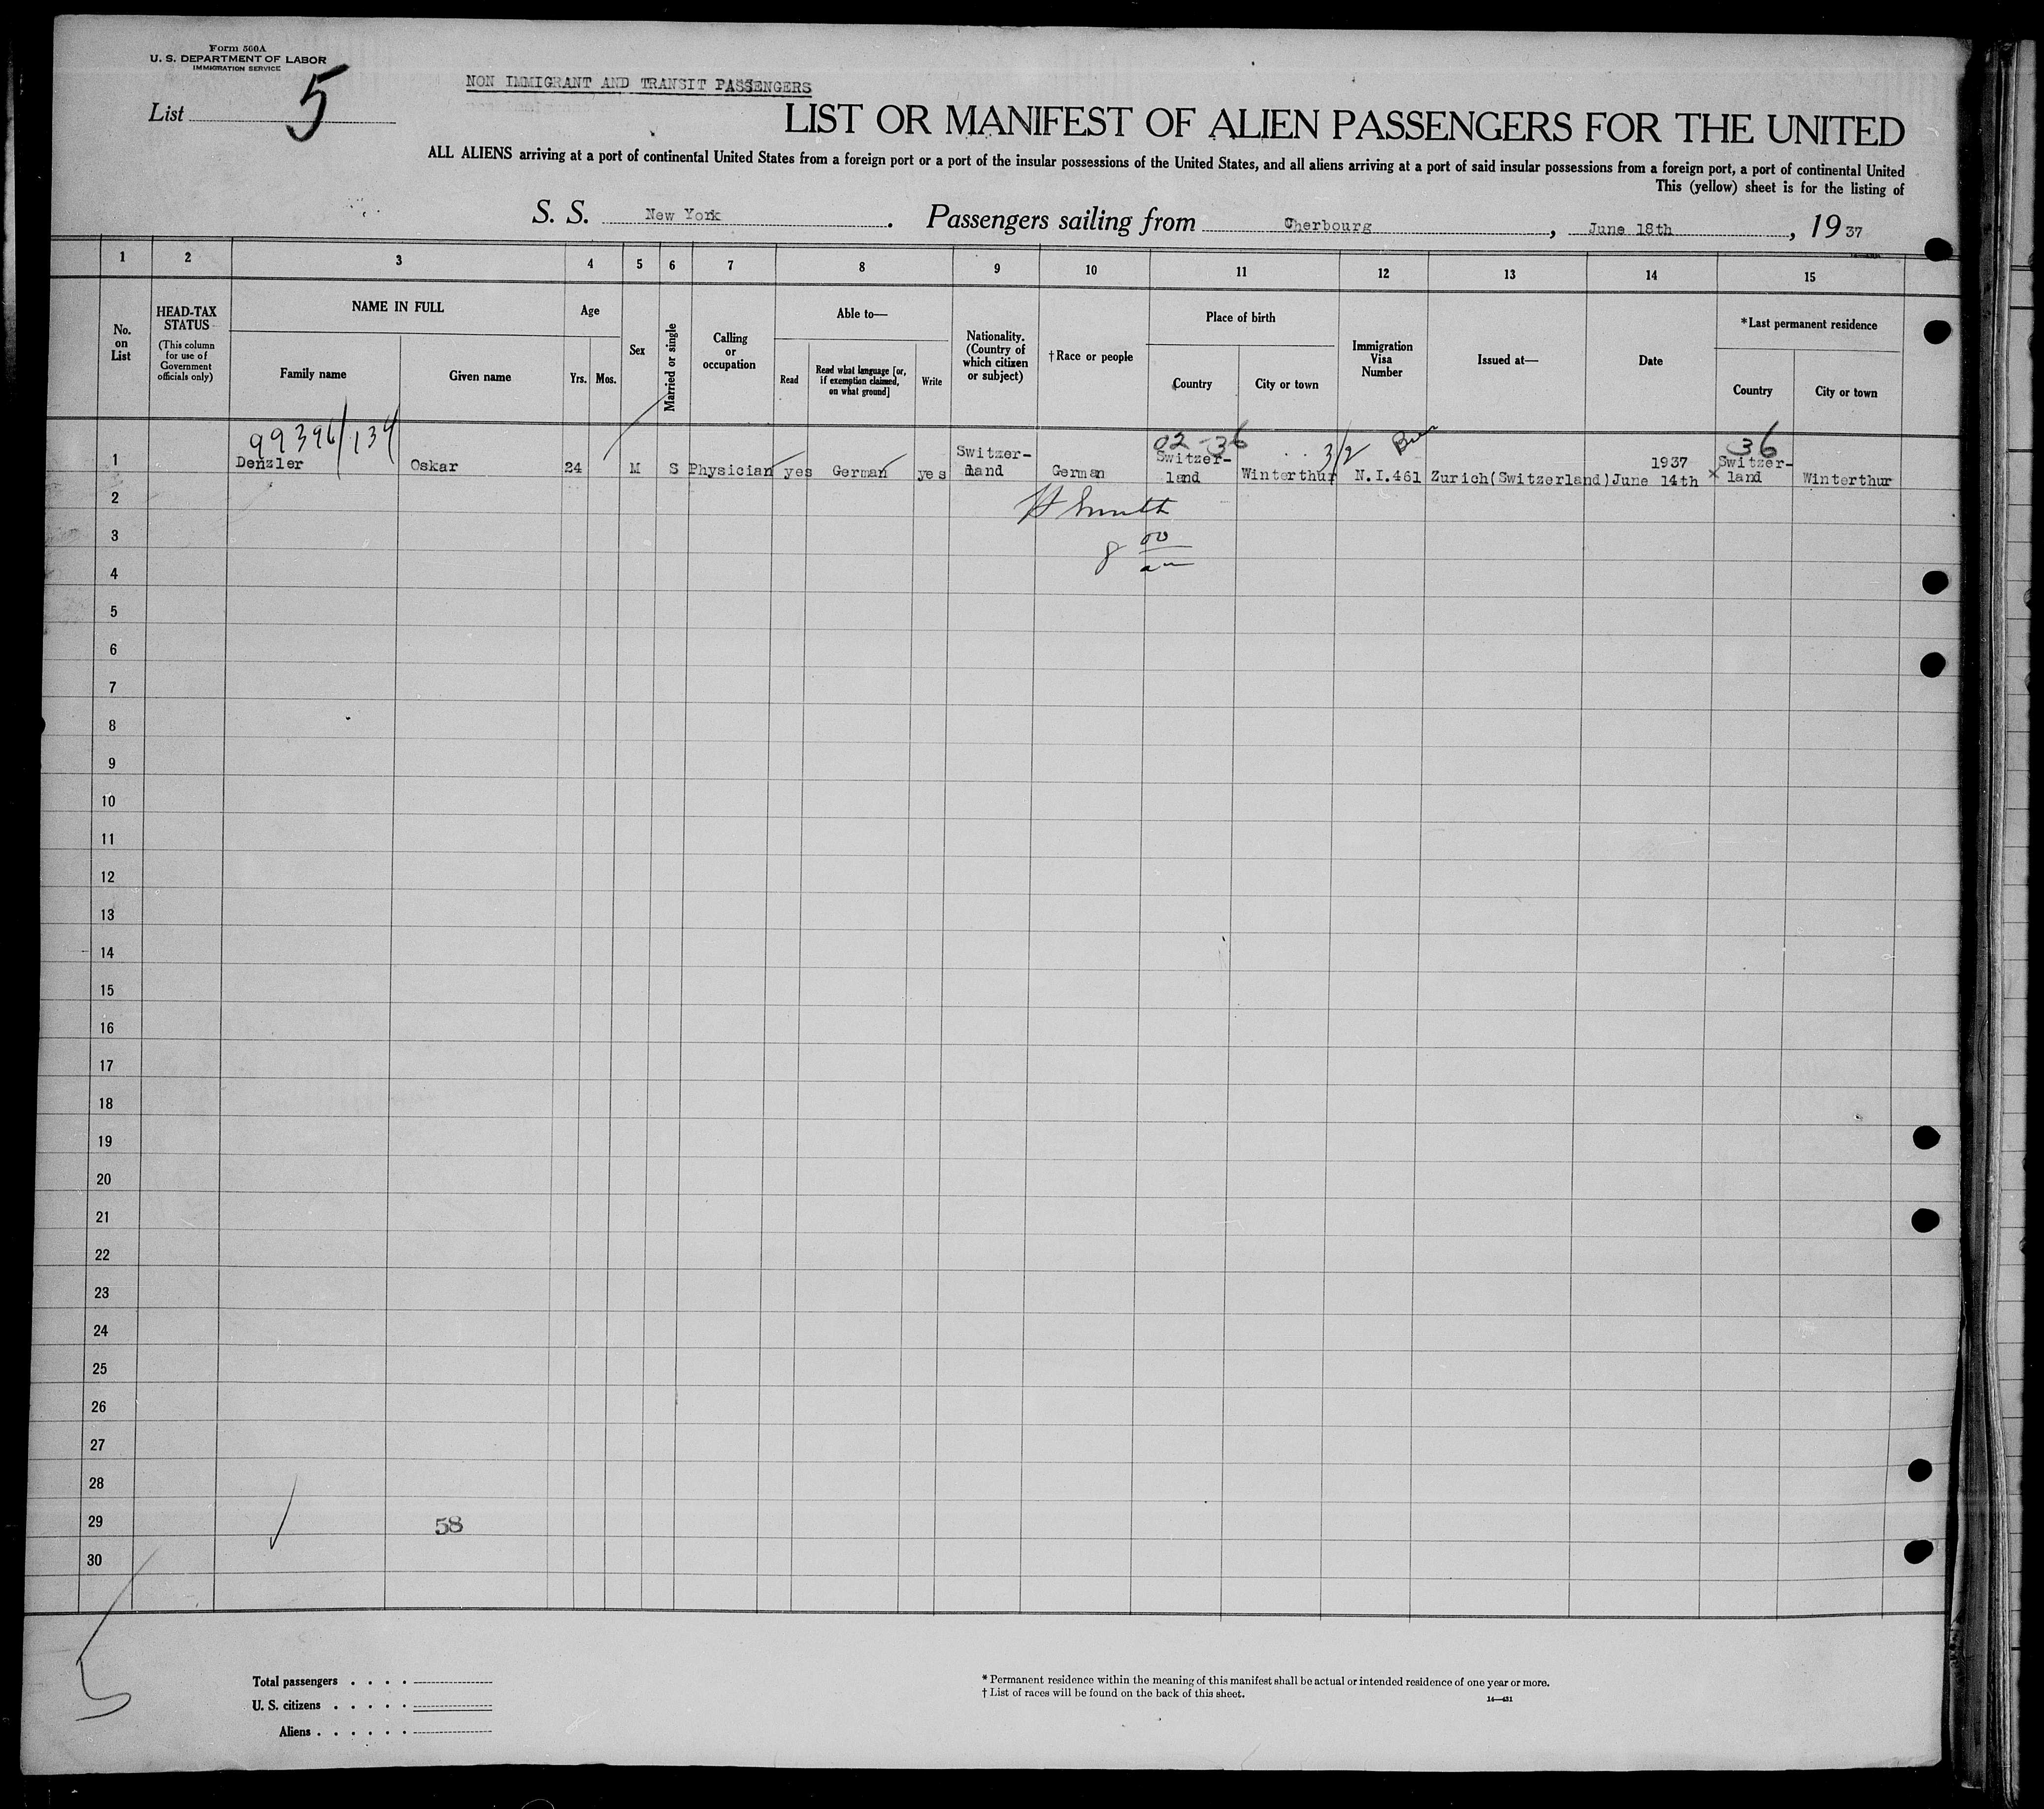 Form 500A
U. S. DEPARTMENT OF LABOR
IMMIGRATION SERVICE
List 5
NON IMMIGRANT AND TRANSIT PASSENGERS
LIST OR MANIFEST OF ALIEN PASSENGERS FOR THE UNITED
ALL ALIENS arriving at a port of continental United States from a foreign port or a port of the insular possessions of the United States, and all aliens arriving at a port of said insular possessions from a foreign port, a port of continental United
This (yellow) sheet is for the listing of
S. S. New York. Passengers sailing from Cherbourg, June 18th, 1937
1 2 3 4 5 6 7 8 9 10 11 12 13 14 15
No. on List
HEAD-TAX STATUS
(This column for use of Government officials only)
NAME IN FULL
Family name
Given name
Age
Yrs. Mos.
Sex
Married or single
Calling or occupation
Able to—
Read
Read what language [or, if exemption claimed, on what ground]
Write
Nationality. (Country of which citizen or subject)
†Race or people
Place of birth
Country
City or town
Immigration Visa Number
Issued at—
Date
*Last permanent residence
Country
City or town
99396/134
02-36
3/2
36
1 Denzler Oskar 24 M S Physician yes German yes Switzer-land German Switzer-land Winterthur N.I.461 Zurich(Switzerland) 1937 June 14th x Switzer-land Winterthur
2
H Smith
3
8 00
am
4
5
6
7
8
9
10
11
12
13
14
15
16
17
18
19
20
21
22
23
24
25
26
27
28
29 58
30
Total passengers . . . .
U. S. citizens . . . . .
Aliens . . . . . .
* Permanent residence within the meaning of this manifest shall be actual or intended residence of one year or more.
† List of races will be found on the back of this sheet.
14—431